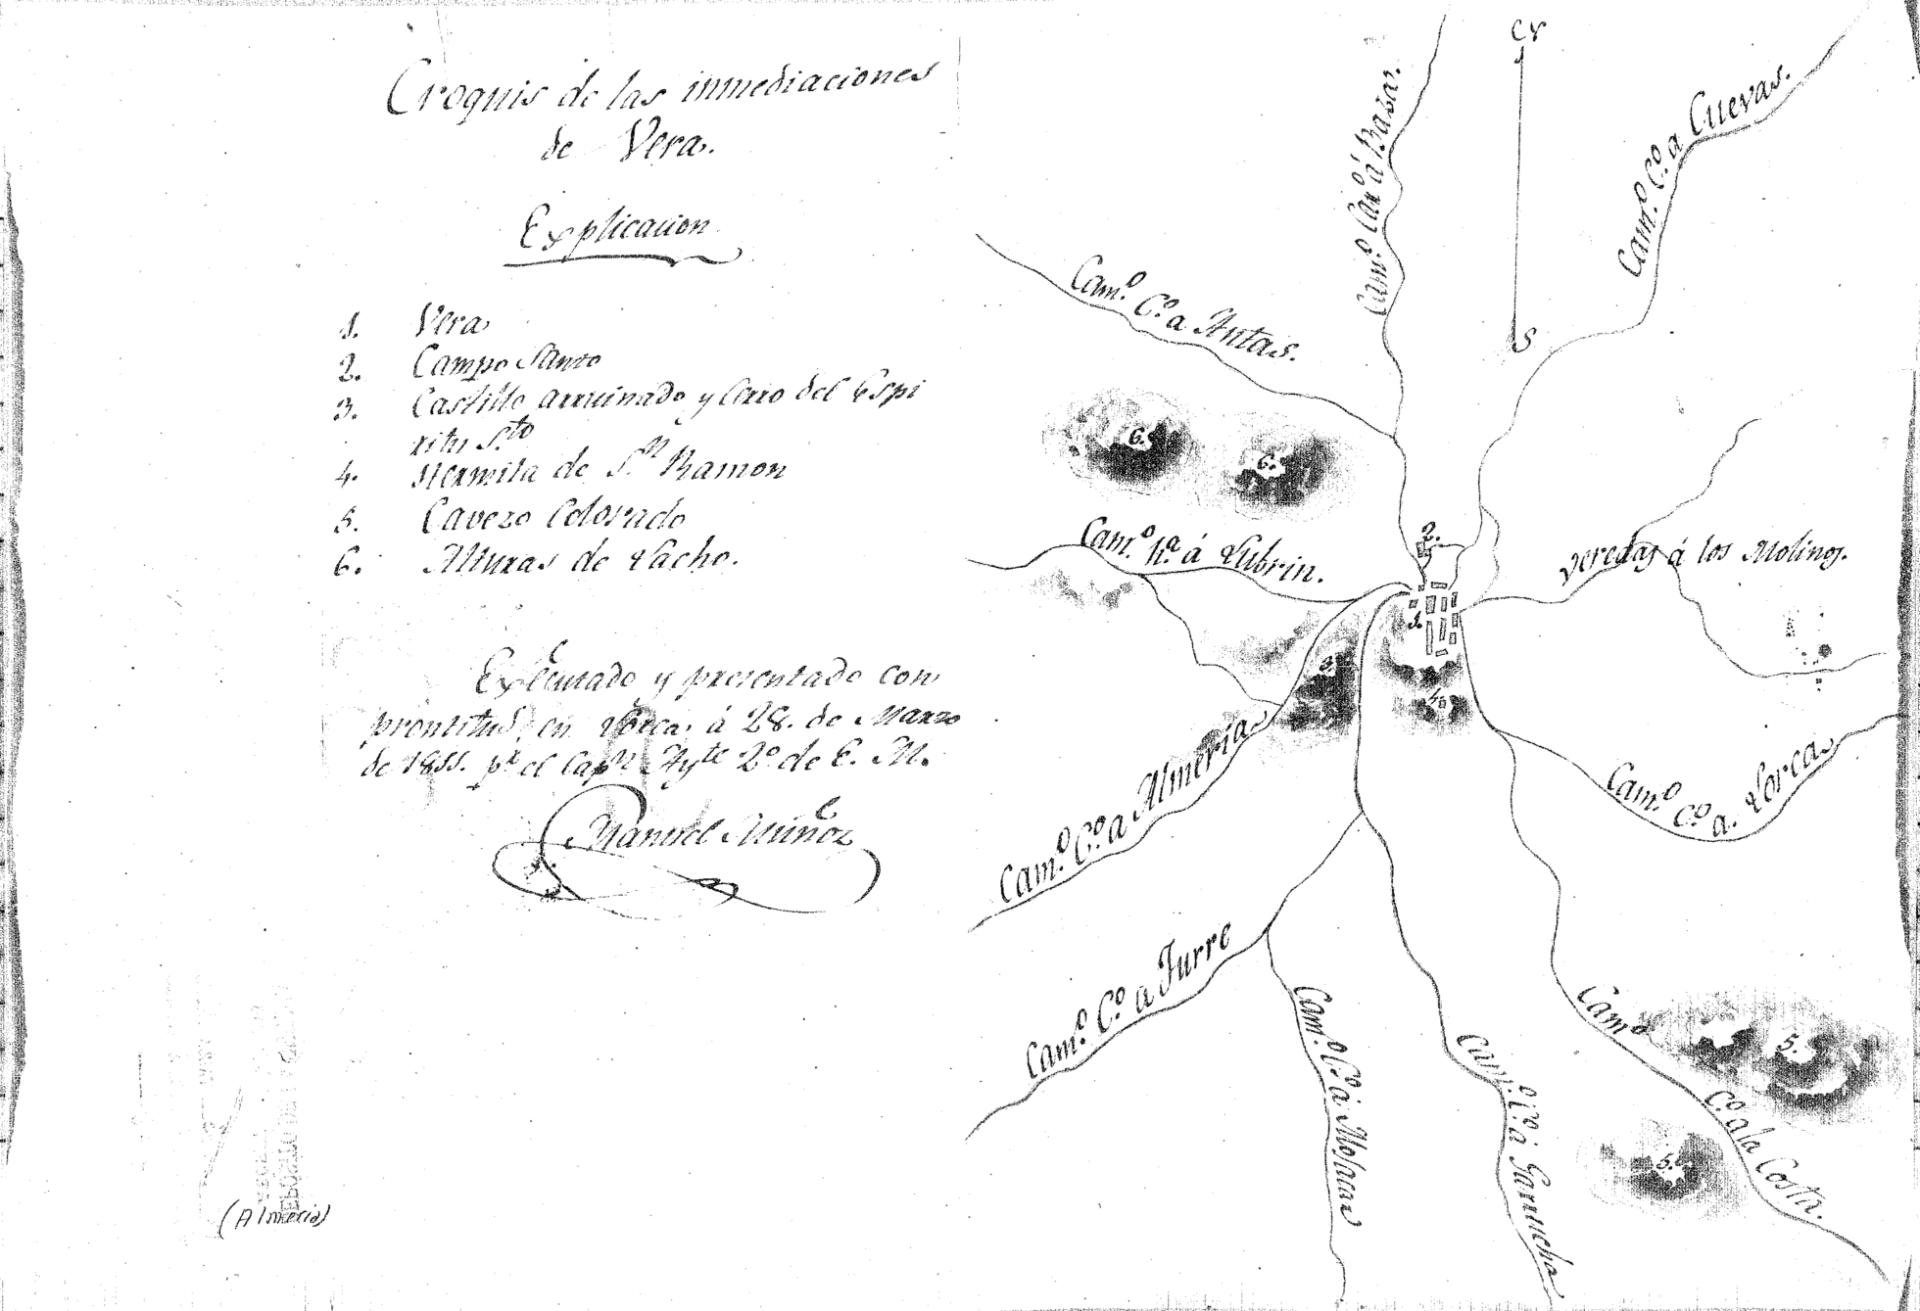 Croquis de las inmediaciones
de Vera.
Explicacion
1. Vera
2. Campo Santo
3. Castillo arruinado y Cerro del Espi
ritu S.to
4. Hermita de S.n Ramon
5. Cavezo Colorado
6. Alturas de Lacho.
Executado y presentado con
prontitud, en Lorca, á 28. de Marzo
de 1811. p.r el Cap.n Ayte 2.o de E. M.
Manuel Muñoz
(Almeria)
S
Cam.o Car.o á Baza.
Cam.o C.o a Cuevas.
Cam.o C.o a Antas.
6.
6.
2.
Cam.o h.a á Lubrin.
veredas á los Molinos.
1.
3.
4.
Cam.o C.o a Almeria
Cam.o C.o a. Lorca
Cam.o C.o a Turre
Cam.o C.o á Mojacar
Cam.o C.o á Garrucha
Cam.o C.o a la Costa.
5.
5.